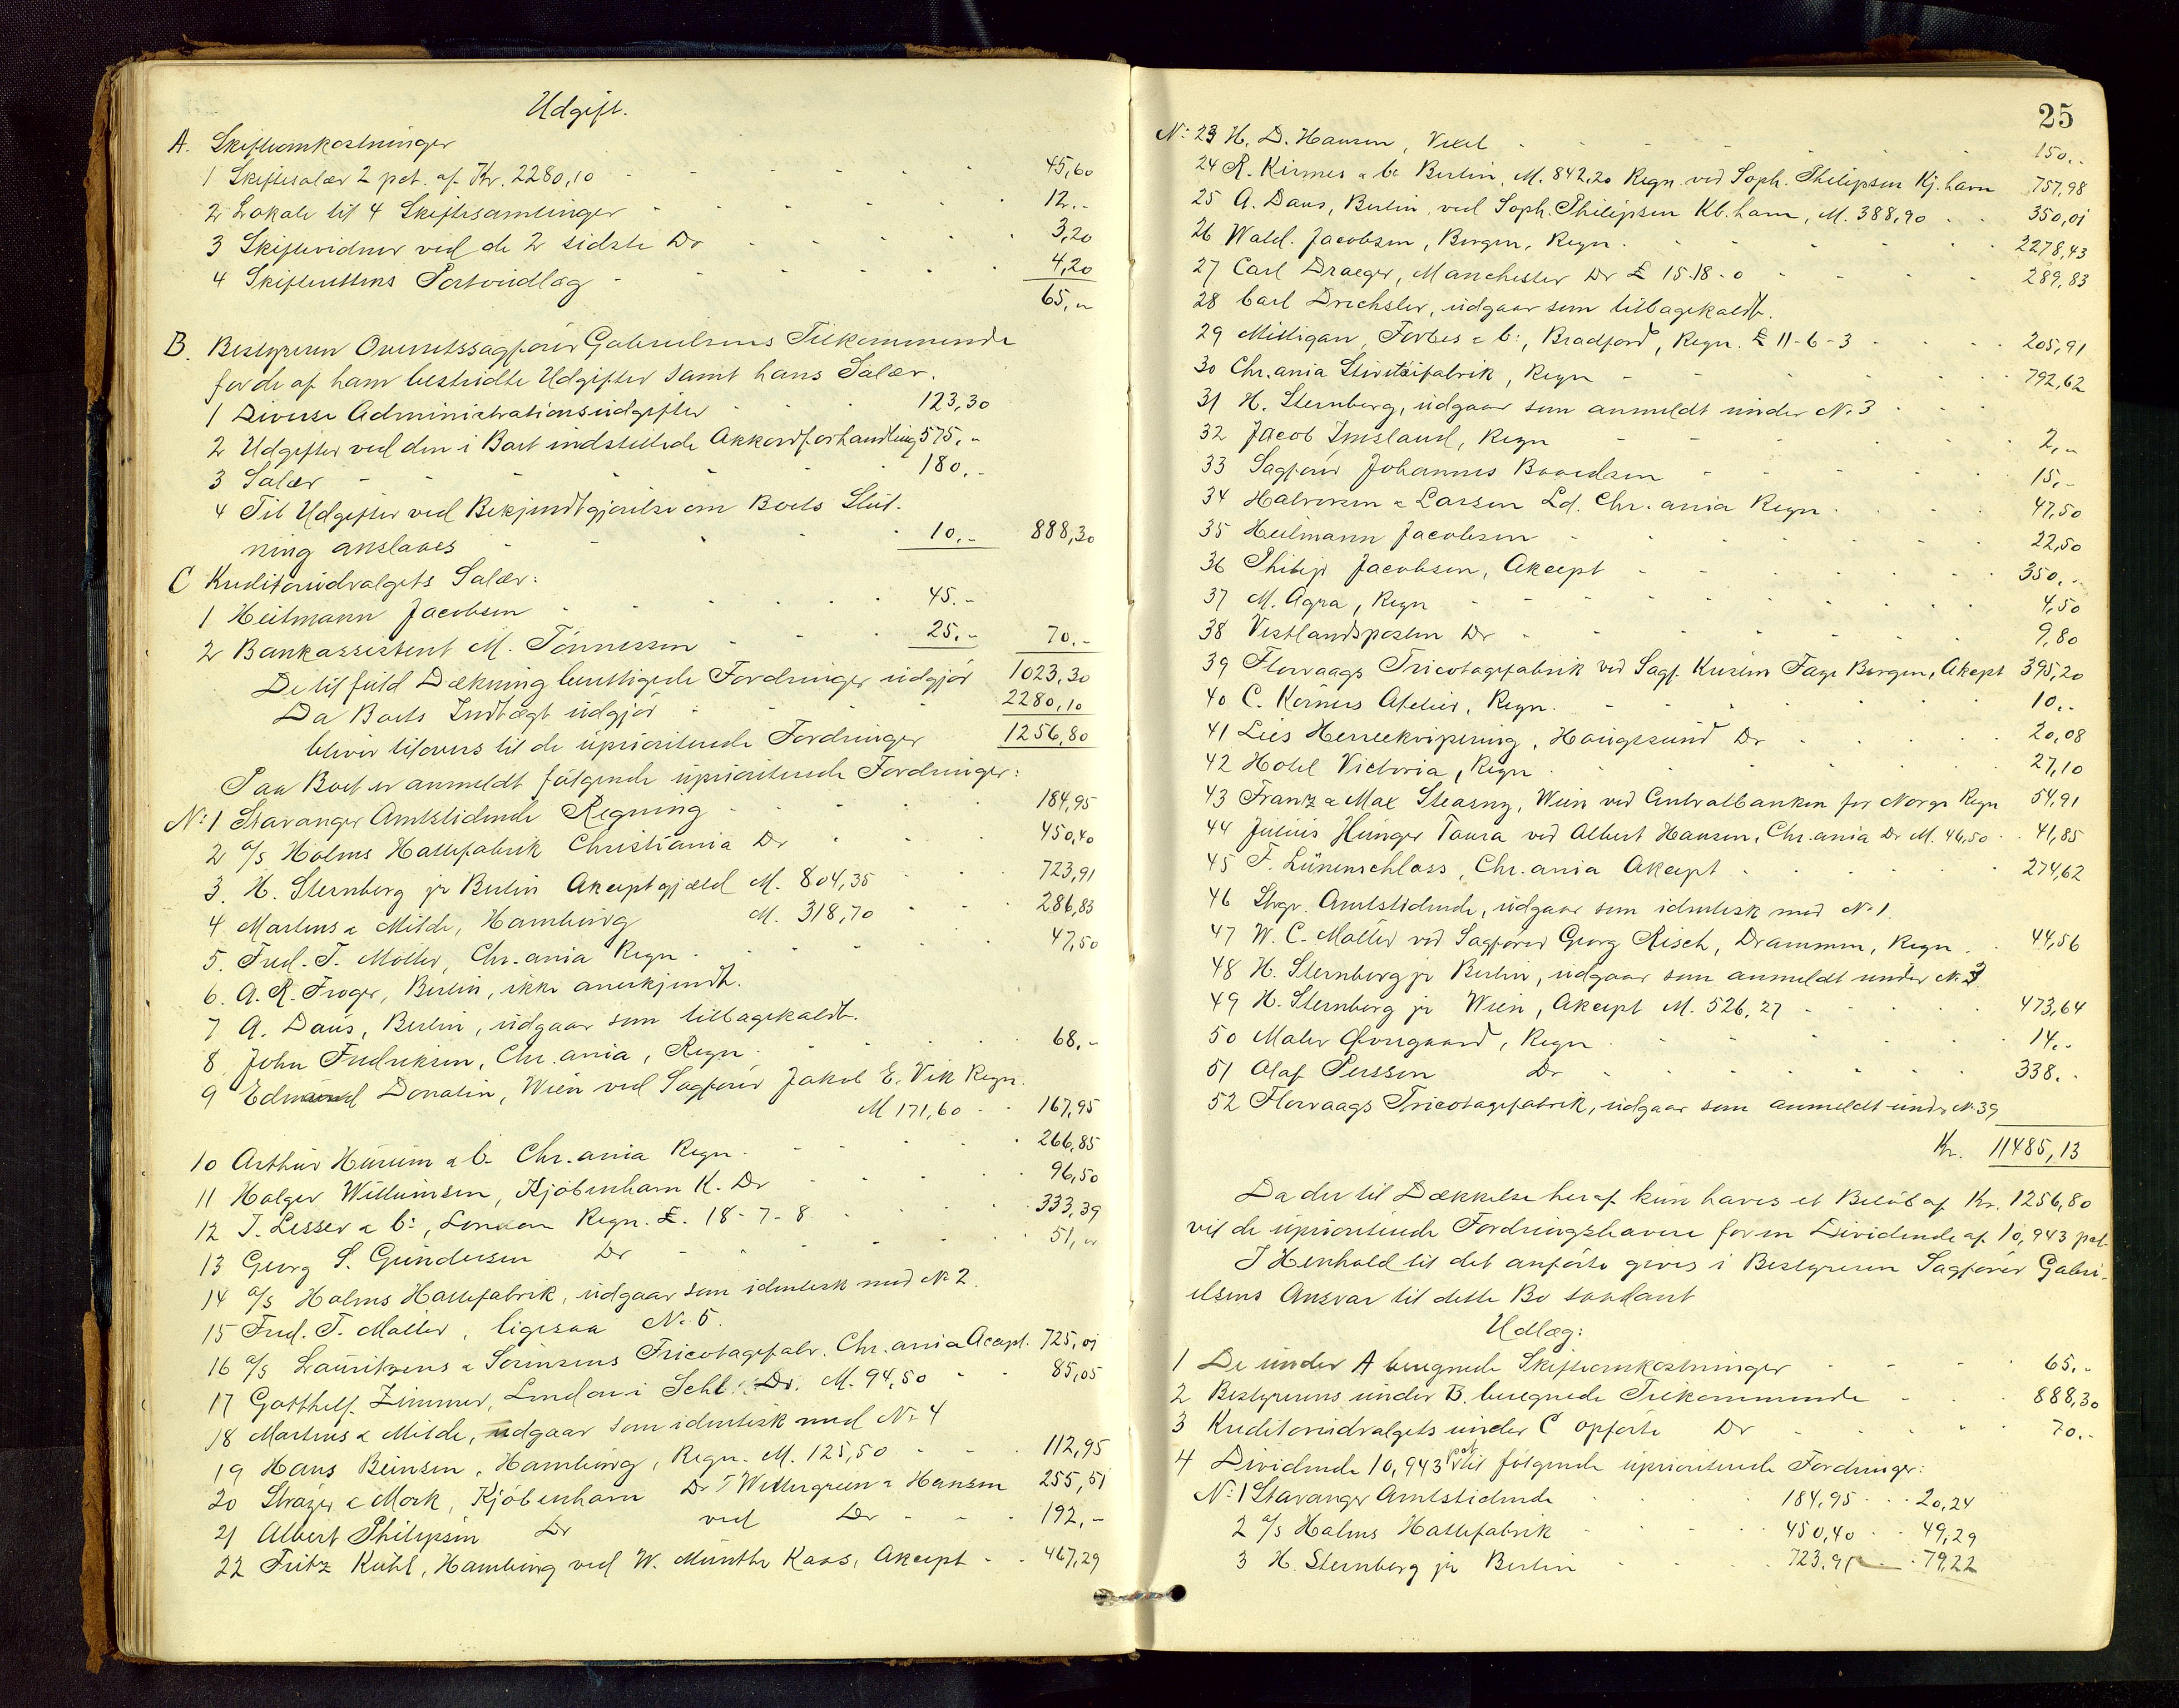 Udgift.
A. Skifteomkostninger
1 Skiftesalær 2 pct. af Kr. 2280,10 45,60
2 Lokale til 4 Skiftesamlinger 12.-
3 Skiftevidner ved de 2 sidste Do 3,20
4 Skifterettens Portoudlæg 4,20
65,-
B. Bestyreren Overretssagfører Gabrielsens Tilkommende
for de af ham bestridte Udgifter samt hans Salær.
1 Diverse Administrationsudgifter 123,30
2 Udgifter ved den i Boet indstillede Akkordforhandling 575.-
3 Salær 180.-
4 Til Udgifter ved Bekjendtgjørelse om Boets Slut-
ning anslaaes 10.- 888,30
C Kreditorudvalgets Salær:
1 Heitmann Jacobsen 45.-
2 Bankassistent M. Tönnessen 25.- 70.-
De til fuld Dækning berettigede Fordringer udgjør 1023,30
Da Boets Indtægt udgjør 2280,10
bliver tilovers til de uprioriterede Fordringer 1256,80
Paa Boet er anmeldt følgende uprioriterede Fordringer:
No 1 Stavanger Amtstidende Regning 184,95
2 a/s Holms Hattefabrik Christiania Do 450,40
3. H. Sternberg jr Berlin Akceptgjæld M. 804,35 723,91
4 Martens & Milde, Hamburg M. 318,70 286,83
5. Fred. T. Møller, Chr.ania Regn. 47,50
6. A. R. Froger, Berlin, ikke anerkjendt.
7 A. Daus, Berlin, udgaar som tilbagekaldt.
8 John Fredriksen, Chr.ania, Regn. 68.-
9 Edmund Donatin, Wien ved Sagfører Jakob E. Vik Regn.
M 171,60 167,95
10 Arthur Hurum & C. Chr.ania Regn. 266,85
11 Holger Willumsen, Kjøbenhavn K. Do 96,50
12 J. Lesser & Co, London Regn. £. 18-7-8 333,39
13 Georg S. Gundersen Do 51,-
14 a/s Holms Hattefabrik, udgaar som identisk med No 2.
15 Fred. T. Møller, ligesaa No 5.
16 a/s Lauritzens & Sørensens Tricotagefabr. Chr.ania Accept. 725,01
17 Gotthelf Zimmer, Lindau i Schl. Do. M. 94,50 85,05
18 Martens & Milde, udgaar som identisk med No 4
19 Hans Beinsen, Hamburg, Regn. M. 125,50 112,95
20 Strøzer & Mork, Kjøbenhavn Do v/ Wettergreen & Hansen 255,51
21 Albert Philipsen Do ved Do 192,-
22 Fritz Kuhl, Hamburg ved W. Münthe Kaas, Akcept 467,29
25
No 23 H. D. Hansen, Vexel 150.-
24 R. Kirmes & Co Berlin, M. 842,20 Regn. ved Soph. Philipsen Kj.havn 757,98
25 A. Daus, Berlin, ved Soph. Philipsen Kb.havn, M. 388,90 350,01
26 Wald. Jacobsen, Bergen, Regn. 2278,43
27 Carl Draeger, Manchester Do £ 15-18-0 289,83
28 Carl Drechsler, udgaar som tilbagekaldt.
29 Milligan, Forbes & Co, Bradford, Regn. £ 11-6-3 205,91
30 Chr.ania Strikvæifabrik, Regn 792,62
31 H. Sternberg, udgaar som anmeldt under No 3
32 Jacob Imsland, Regn 2,-
33 Sagfører Johannes Boardsen 15,-
34 Halvorsen & Larsen Ld. Chr.ania Regn. 47,50
35 Heitmann Jacobsen 22,50
36 Philip Jacobsen, Akcept 350.-
37 M. Agra, Regn 4,50
38 Vestlandsposten Do 9,80
39 Florvaags Tricotagefabrik ved Sagf. Kristen Faye Bergen, Akcept 395,20
40 C. Körners Atelier, Regn. 10.-
41 Lies Herreekvipering, Haugesund Do 20,08
42 Hotel Victoria, Regn 27,10
43 Franz & Max Steasny, Wien ved Centralbanken for Norge Regn 54,91
44 Julius Hünger Taura ved Albert Hansen, Chr.ania Do M. 46,50 41,85
45 F. Lünenschloss, Chr.ania Akcept 274,62
46 Stvgr. Amtstidende, udgaar som identisk med No 1.
47 W. C. Møller ved Sagfører Georg Risch, Drammen, Regn. 44,56
48 H. Sternberg jr Berlin, udgaar som anmeldt under No 3
49 H. Sternberg jr Wien, Akcept M. 526,27 473,64
50 Maler Ovregaard, Regn 14.-
51 Olaf Persson Do 338.-
52 Florvaags Tricotagefabrik, udgaar som anmeldt under No 39
Kr. 11485,13
Da der til Dækkelse heraf kun haves et Beløb af Kr. 1256,80
vil de uprioriterede Fordringshavere faa en Dividende af 10,943 pct.
I Henhold til det anførte gives i Bestyreren Sagfører Gabri-
elsens Ansvar til dette Bo saadant
Udlæg:
1 De under A beregnede Skifteomkostninger 65.-
2 Bestyrerens under B. beregnede Tilkommende 888,30
3 Kreditorudvalgets under C opførte Do 70.-
4 Dividende 10,943 pct til følgende uprioriterede Fordringer:
No 1 Stavanger Amtstidende 184,95 20,24
2 a/s Holms Hattefabrik 450,40 49,29
3 H. Sternberg jr Berlin 723,91 79,22